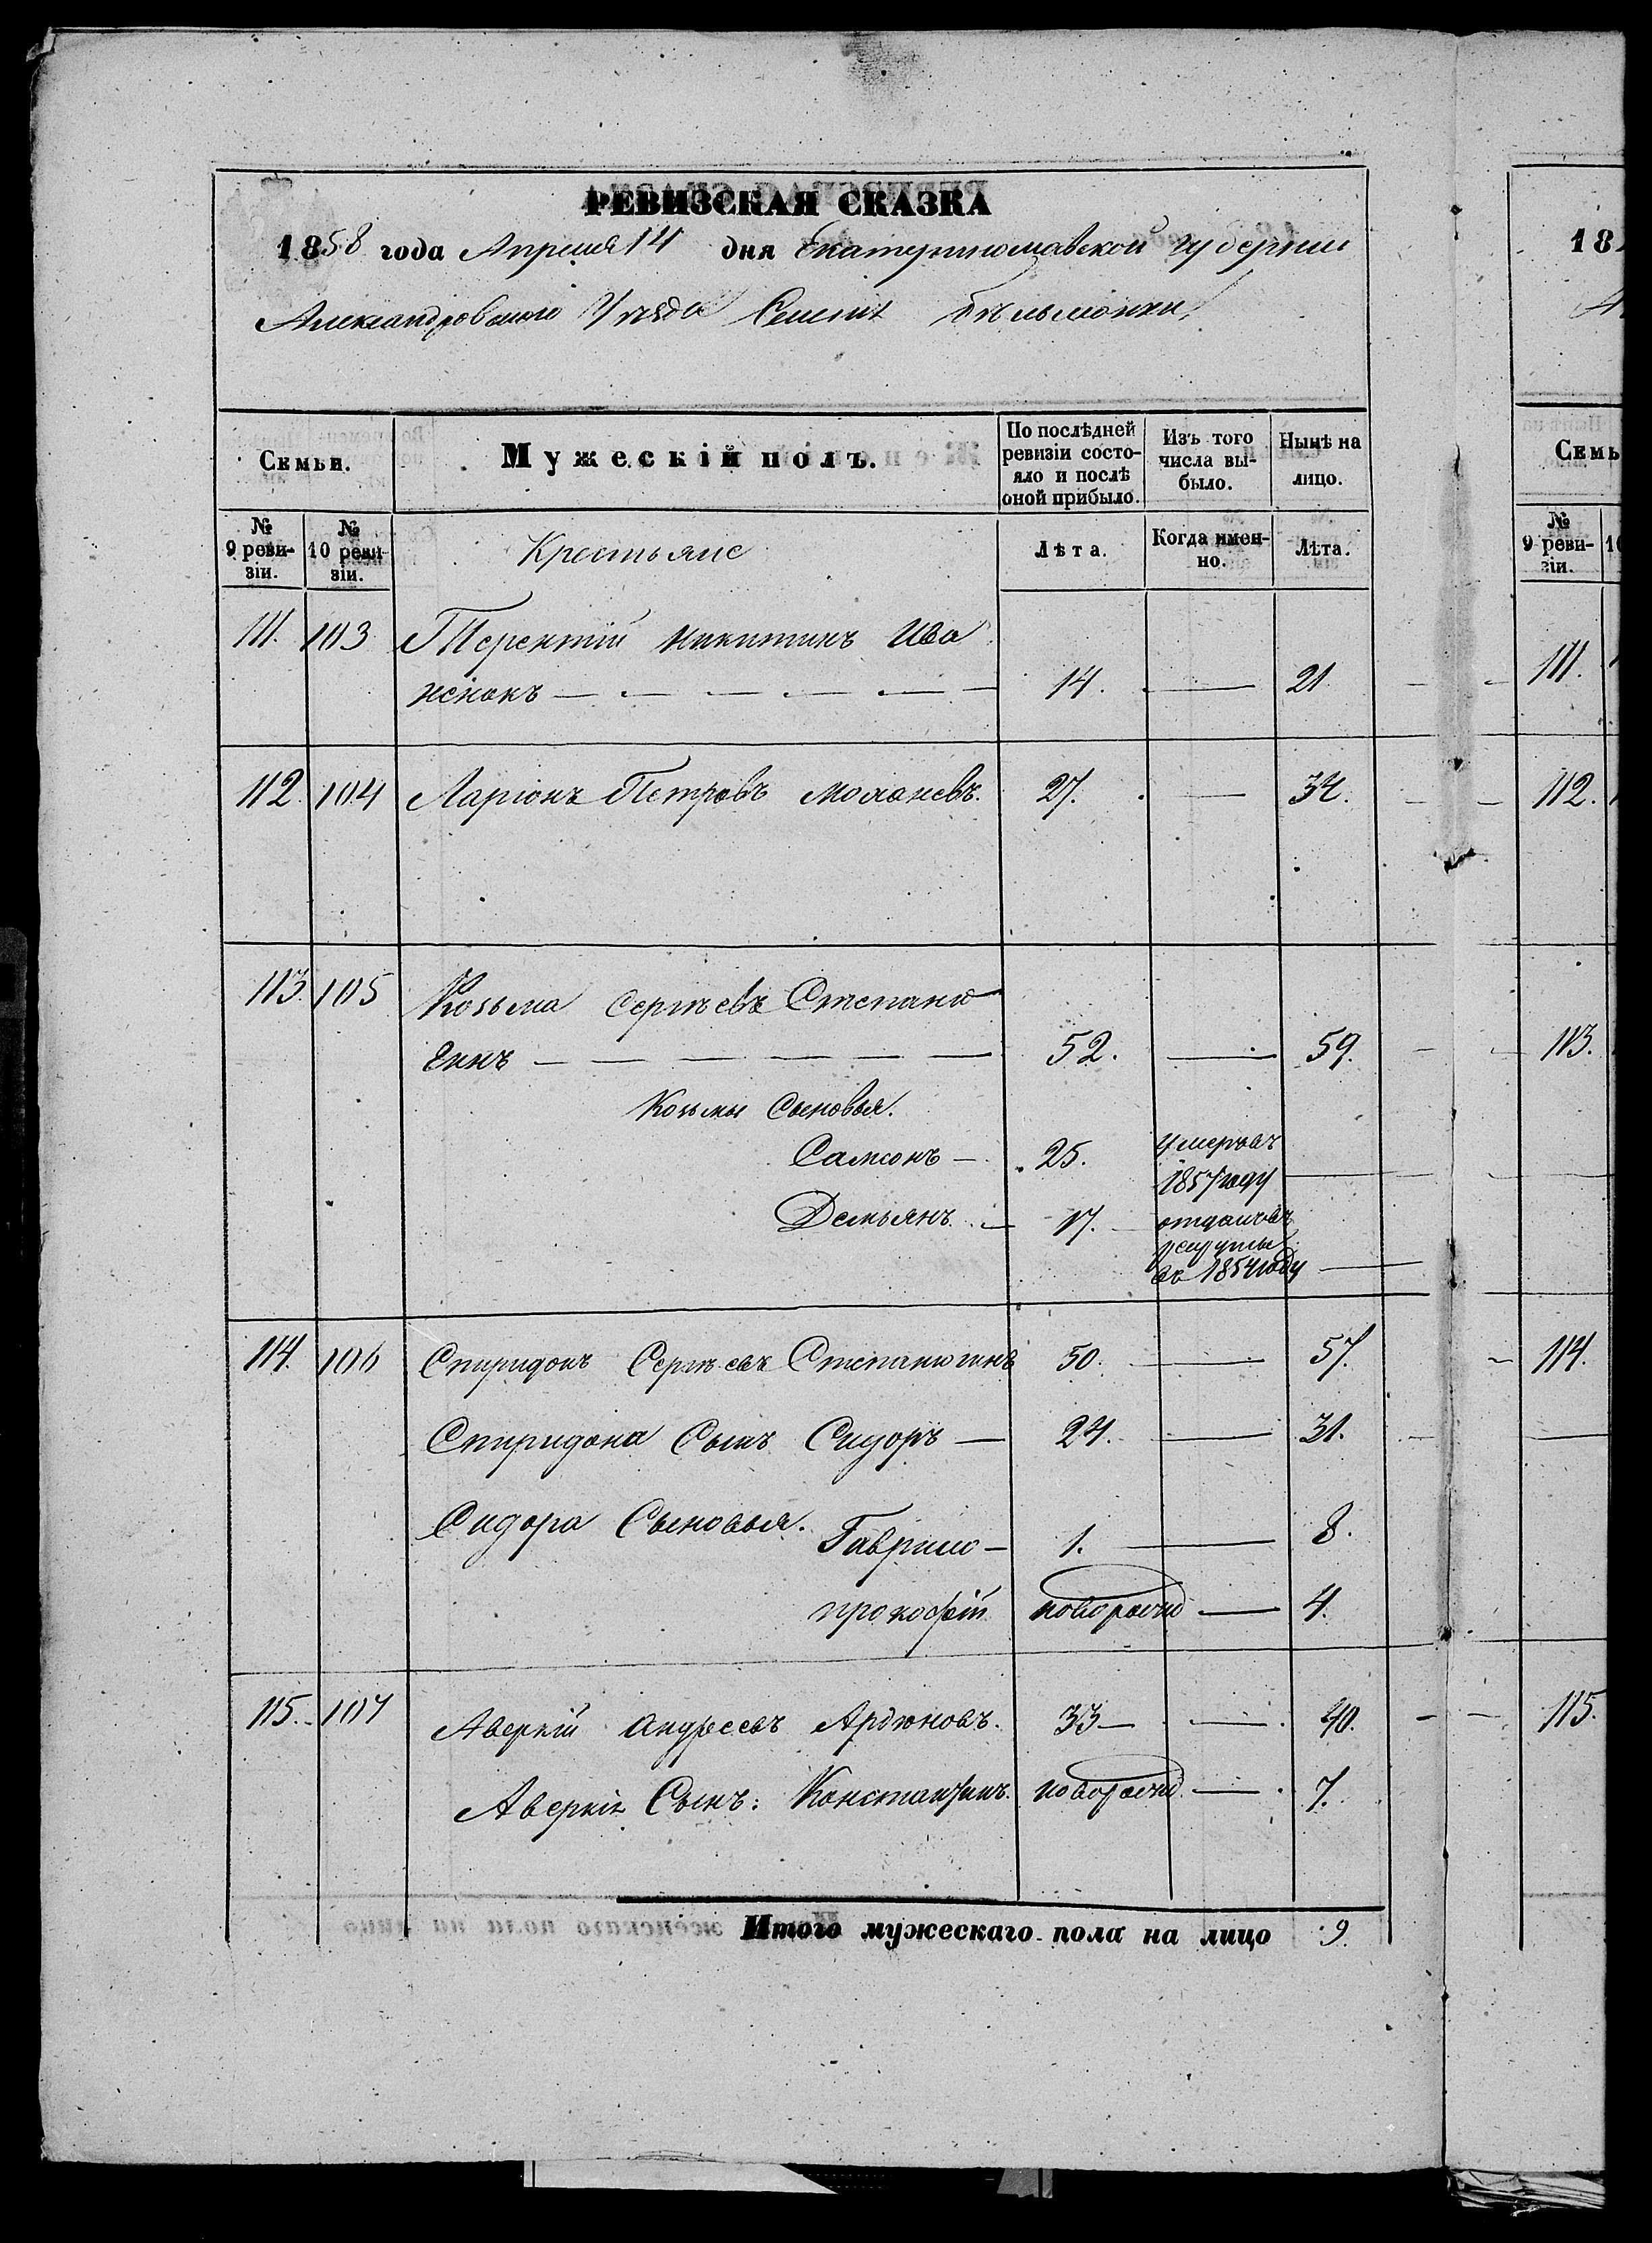 РЕВИЗСКАЯ СКАЗКА
1858 года Апреля 14 дня Екатеринославской губернии
Александровского Уезда Селенія Бѣльманки
Семьи. Мужескій полъ. По послѣдней ревизіи состояло и послѣ оной прибыло. Изъ того числа выбыло. Нынѣ на лицо.
№ 9 ревизіи. № 10 ревизіи. Крестьяне Лѣта. Когда именно. Лѣта.
111. 103 Терентій Никитинъ Ива
ненокъ — 14. — 21
112. 104 Ларіонъ Петровъ 27. — 34.
113. 105 Козьма Сергѣевъ Степаню
гинъ — 52. — 59.
Козьмы Сыновья.
Самсонъ — 25. умеръ въ
1857 году —
Демьянъ — 17. отданъ въ
рекруты
въ 1854 году —
114. 106 Спиридонъ Сергѣевъ Степанюгинъ 50. — 57.
Спиридона Сынъ Сидоръ — 24. — 31.
Сидора Сыновья. Гаврило — 1. — 8.
прокофій новорожд — 4.
115. 107 Аверкій Андреевъ 33 — 40.
Аверкія Сынъ: Константинъ. новорожд — 7.
Итого мужескаго пола на лицо 9.
18
Семь
№ 9 ревизіи.
111.
112.
113.
114.
115.